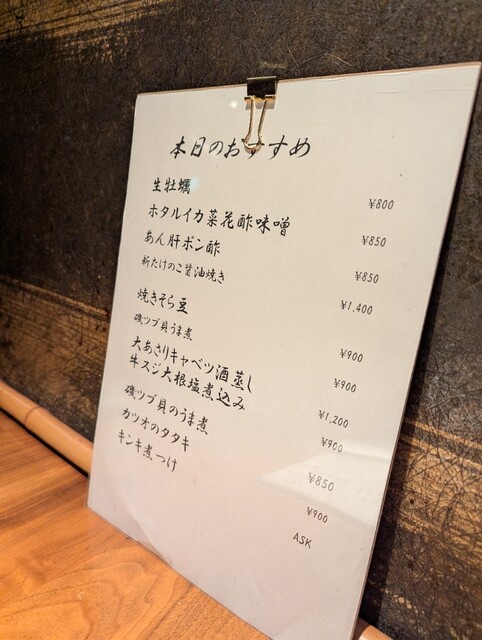 本日のおすすめ
生牡蠣 ¥800
ホタルイカ菜花酢味噌 ¥850
あん肝ポン酢 ¥850
新たけのこ醤油焼き ¥1,400
焼きそら豆 ¥900
磯ツブ貝うま煮 ¥900
大あさりキャベツ酒蒸し ¥1,200
牛スジ大根塩煮込み ¥900
磯ツブ貝のうま煮 ¥850
カツオのタタキ ¥900
キンキ煮つけ ASK